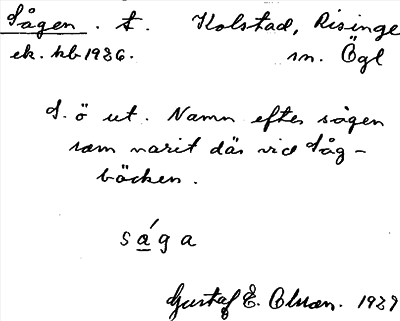 Sågen. t. Kolstad, Risinge
ek. kb 1936. sn. Ögl
S. ö ut. Namn efter sågen
som varit där vid Såg-
bäcken.
sága
Gustaf E. Olsson. 1939